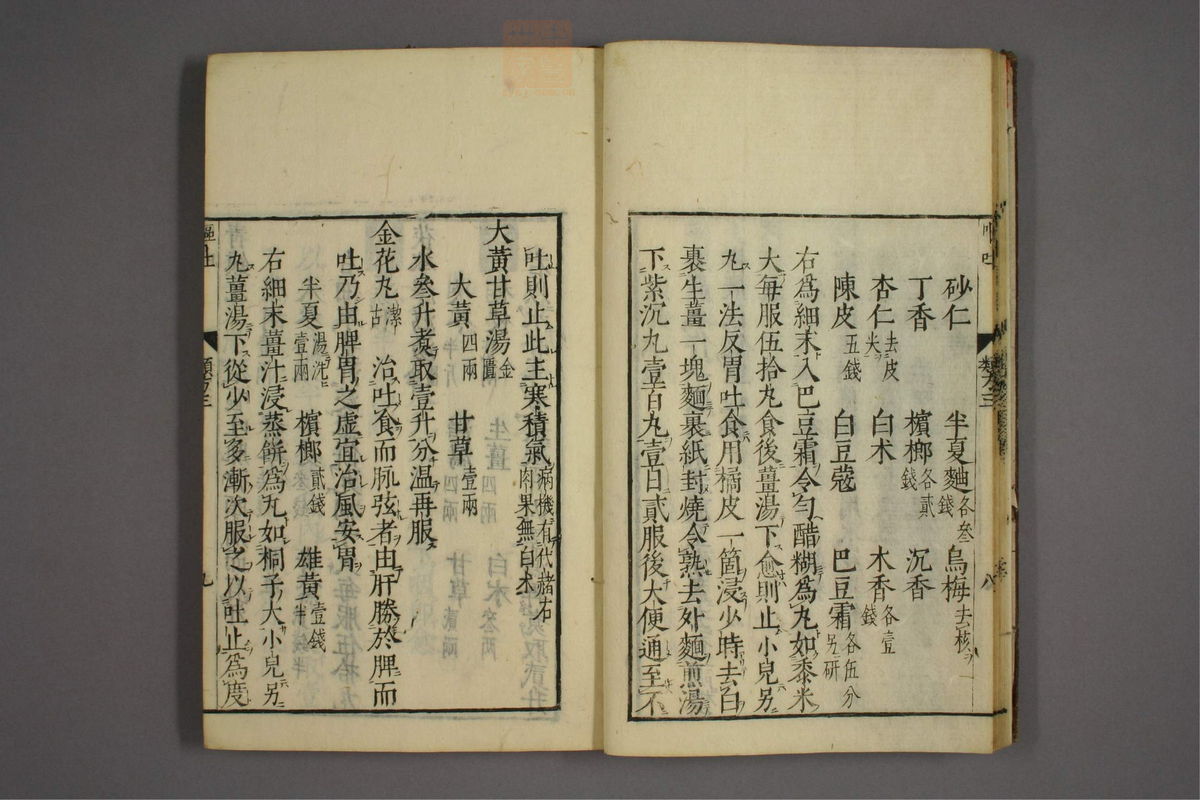 砂仁　半夏麯各叁錢　烏梅去核
丁香　檳榔各貳錢　沉香
杏仁去皮尖　白朮　木香各壹錢
陳皮五錢　白豆蔻　巴豆霜各伍分另研
右爲細末入巴豆霜令勻醋糊爲丸如黍米
大每服伍拾丸食後薑湯下愈則止小兒另
丸一法反胃吐食用橘皮一箇浸少時去白
裹生薑一塊麵裹紙封燒令熟去外麵煎湯
下紫沉丸壹百丸壹日貳服後大便通至不
八
吐則止此主寒積氣病機有代赭石肉果無白朮
大黃甘草湯金匱
大黃四兩　甘草壹兩
水叁升煑取壹升分溫再服
金花丸潔古　治吐食而脉弦者由肝勝於脾而
吐乃由脾胃之虛宜治風安胃
半夏湯洗壹兩　檳榔貳錢　雄黃壹錢半
右細末薑汁浸蒸餅爲丸如桐子大小兒另
丸薑湯下從少至多漸次服之以吐止爲度
嘔吐　類方三　九